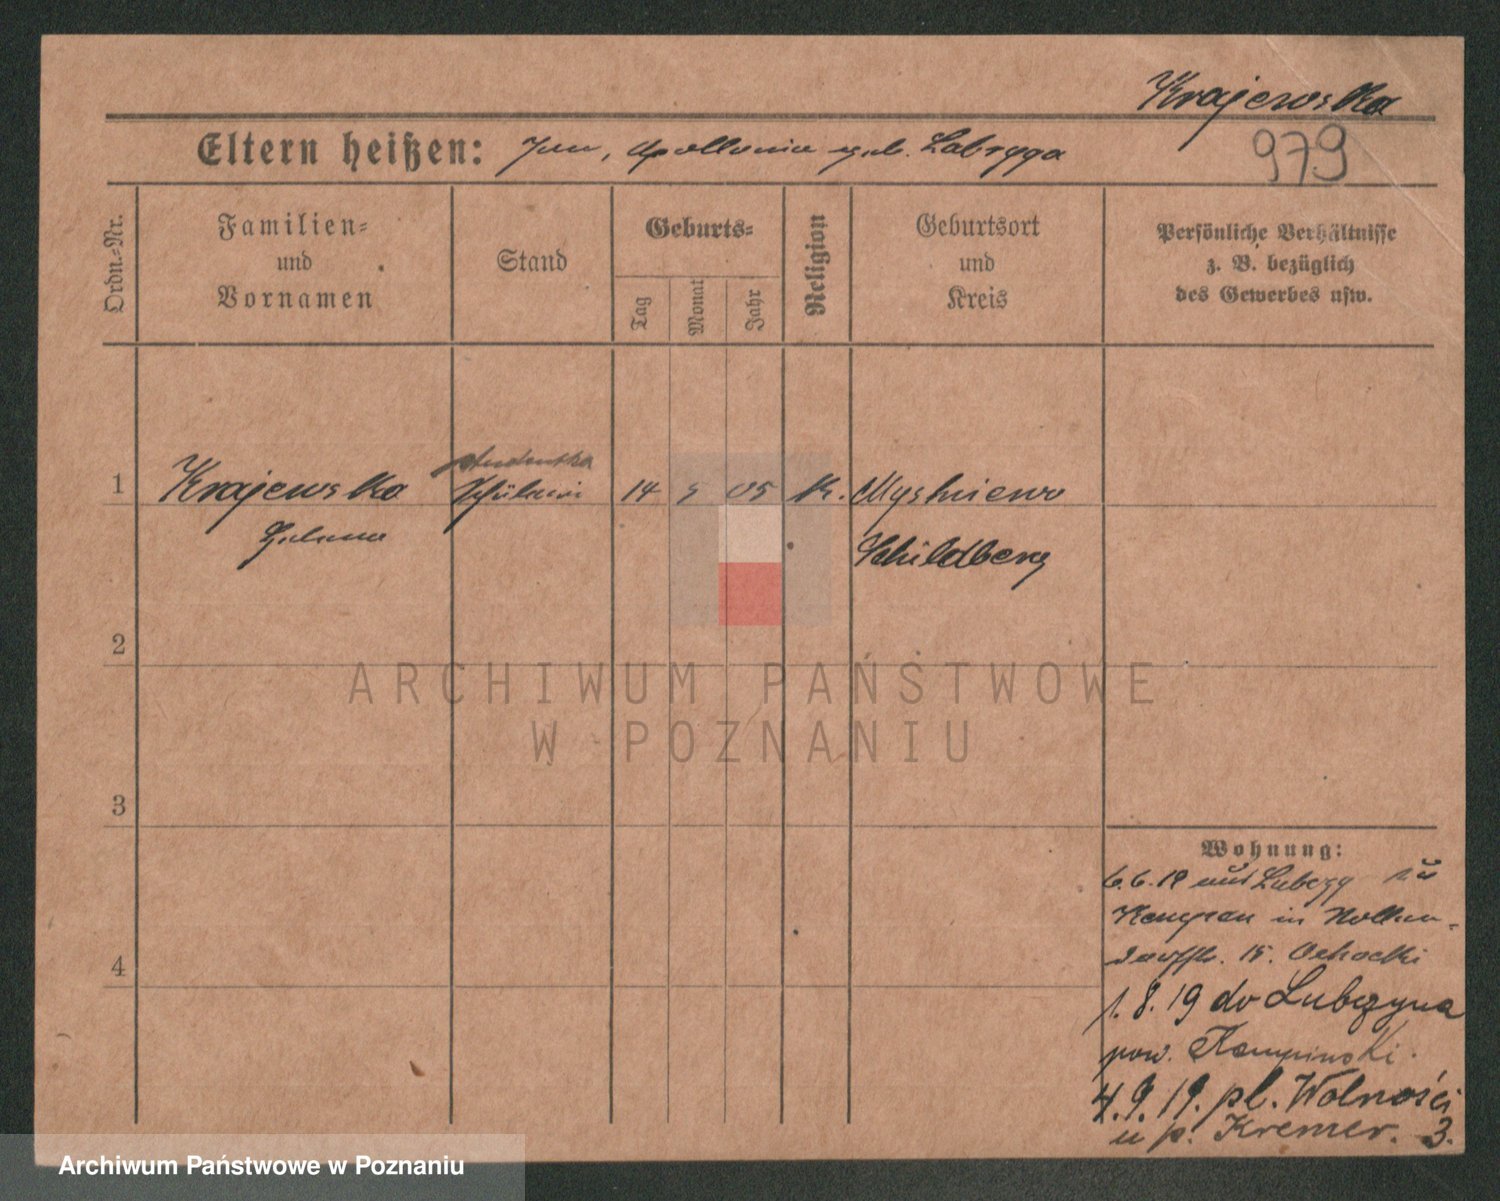 Krajewska
979
Eltern heißen: Jan, Apollonia geb. Labryga
Ordn.=Nr.
Familien=
und
Vornamen
Stand
Geburts=
Tag
Monat
Jahr
Religion
Geburtsort
und
Kreis
Persönliche Verhältnisse
z. B. bezüglich
des Gewerbes usw.
studentka
1 Krajewska Schülerin 14 5 05 K. Myśniewo
Helena
Schildberg
2
3
4
ARCHIWUM PAŃSTWOWE
W POZNANIU
Wohnung:
6.6.19 aus
Kempen in Nollen-
dorffstr. 15.
1.8.19 do Lubczyna
pow. Kempinski.
4.9.19. pl. Wolności
u p. Kremer. 3.
Archiwum Państwowe w Poznaniu